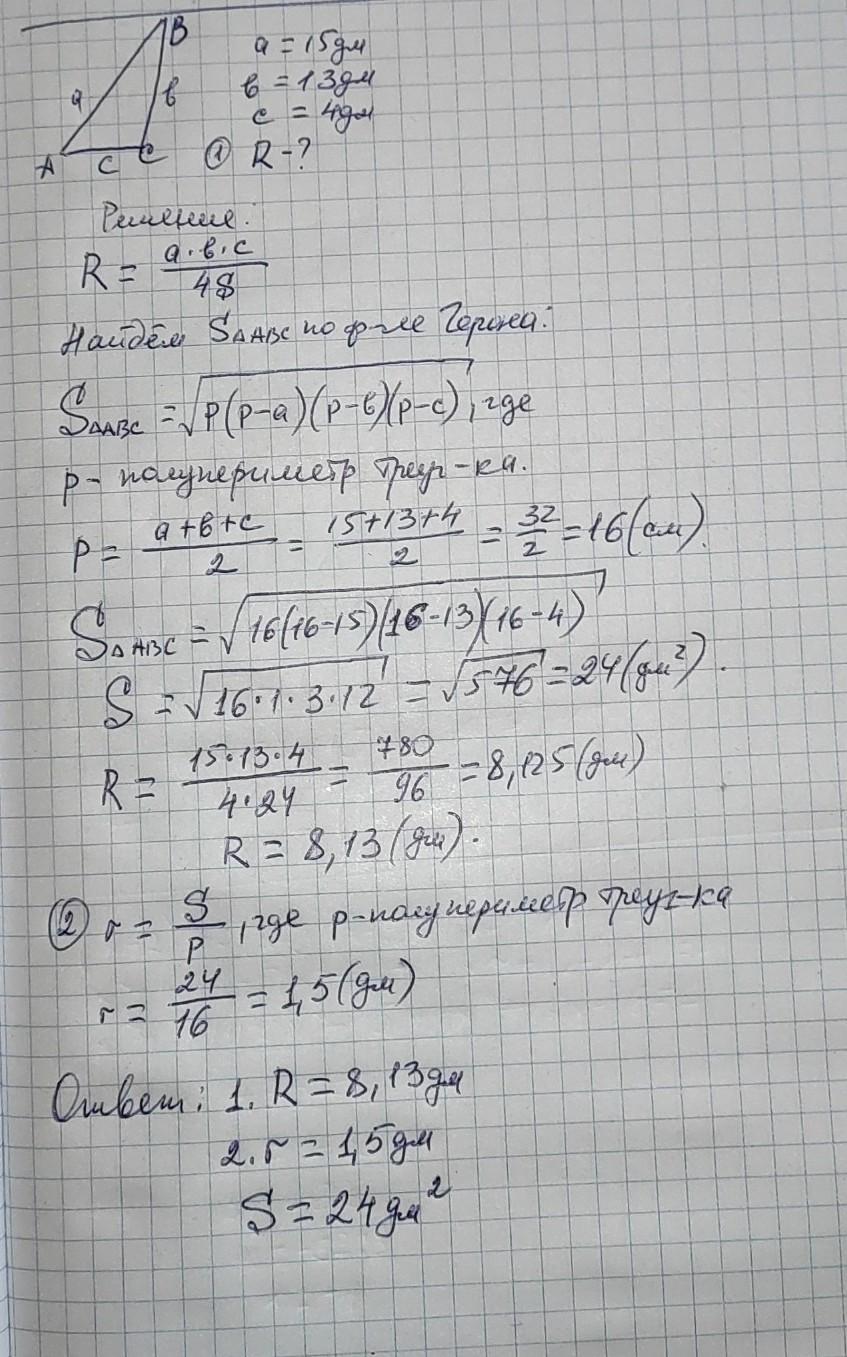 B
a = 15дм
a
в
в = 13дм
c = 4дм
A
c
C
① R - ?
Решение:
R = a·в·c / 4S
Найдём S△ABC по ф-ле Герона:
S△ABC = √p(p-a)(p-в)(p-c), где
p - полупериметр треуг-ка.
P = a+в+c / 2 = 15+13+4 / 2 = 32/2 = 16(см).
S△ABC = √16(16-15)(16-13)(16-4)
S = √16·1·3·12 = √576 = 24(дм²).
R = 15·13·4 / 4·24 = 780 / 96 = 8,125(дм)
R = 8,13(дм).
② r = S/P, где p-полупериметр треуг-ка
r = 24/16 = 1,5(дм)
Ответ: 1. R = 8,13дм
2. r = 1,5дм
S = 24дм²